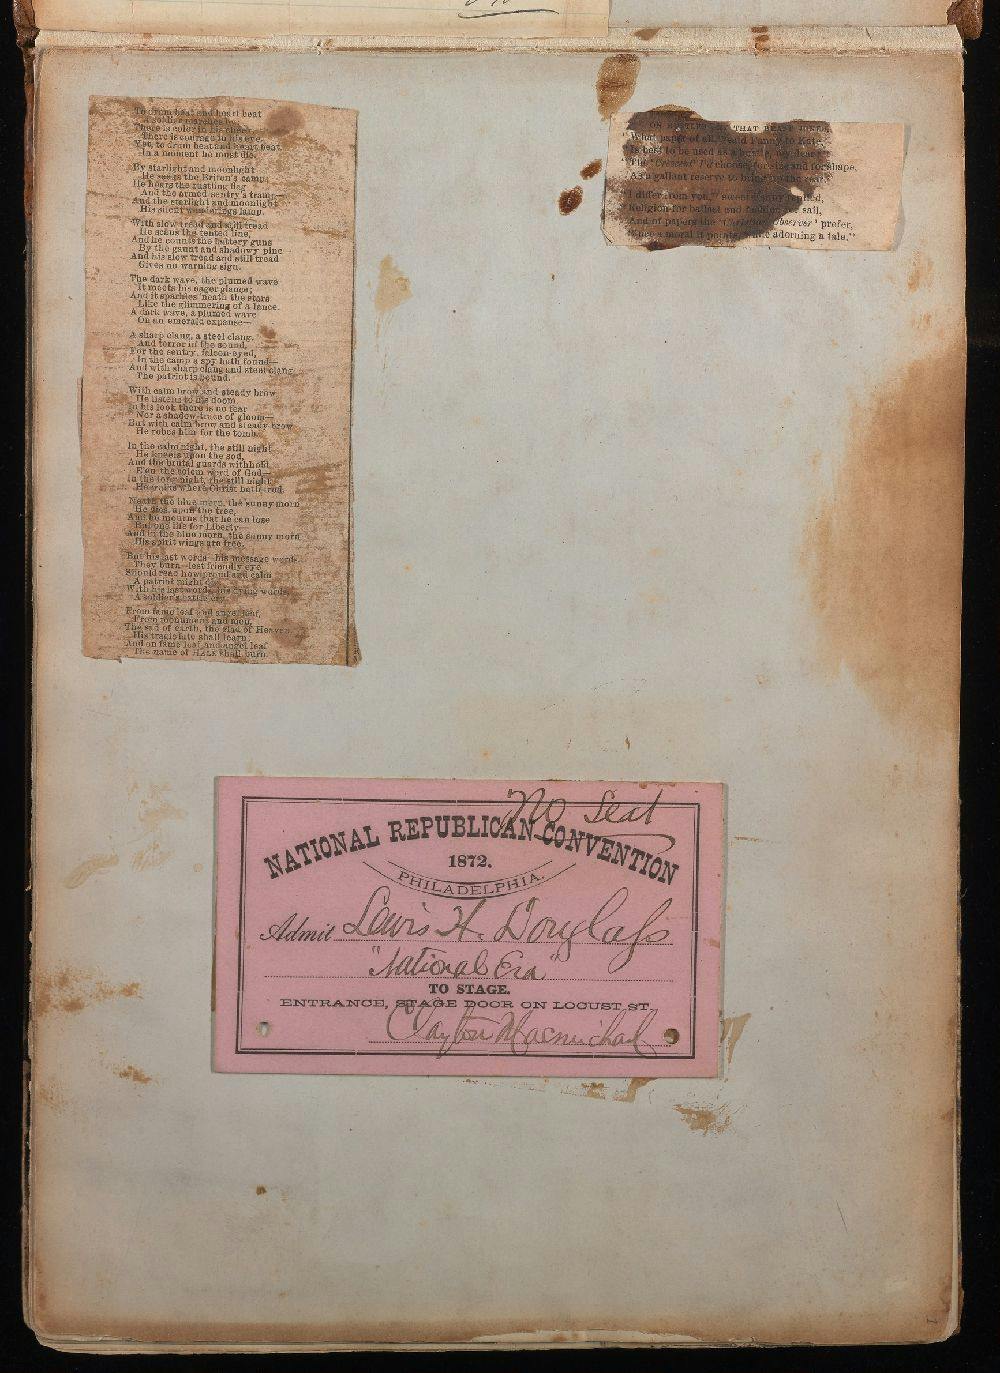 To drum beat and heart beat
A soldier marches by,
There is color in his cheek,
There is courage in his eye,
Yet to drum beat and heart beat
In a moment he must die.
By starlight and moonlight
He seeks the Briton's camp;
He hears the rustling flag
And the armed sentry's tramp—
And the starlight and moonlight
His silent wanderings lamp.
With slow tread and still tread
He scans the tented line,
And he counts the battery guns
By the gaunt and shadowy pine
And his slow tread and still tread
Gives no warning sign.
The dark wave, the plumed wave
It meets his eager glance;
And it sparkles 'neath the stars
Like the glimmering of a lance.
A dark wave, a plumed wave
On an emerald expanse—
A sharp clang, a steel clang,
And terror in the sound,
For the sentry, falcon-eyed,
In the camp a spy hath found—
And with sharp clang and steel clang
The patriot is bound.
With calm brow and steady brow
He listens to his doom
In his look there is no fear
Nor a shadow-trace of gloom—
But with calm brow and steady brow
He robes him for the tomb.
In the calm night, the still night
He kneels upon the sod,
And the brutal guards withhold
E'en the solem word of God—
In the long night, the still night
He walks where Christ hath trod.
'Neath the blue morn, the sunny morn
He dies upon the tree,
And he mourns that he can lose
But one life for Liberty—
And in the blue morn, the sunny morn
His spirit wings are free.
But his last words—his message words
They burn—lest friendly eye
Should read how proud and calm
A patriot might
With his last words, his dying words,
A soldier's battle cry.
From fame leaf and angel leaf,
From monument and urn,
The sad of earth, the glad of Heaven
His tragic fate shall learn,
And on fame leaf and angel leaf
The name of HALE shall burn.
ON THAT
"What paper of all," said Fanny to Kate,
"Is best to be used as a bustle, my dear?"
"The 'Crescent' I'd choose for size and for shape
As a gallant reserve to bring up the rear."
"I differ from you," sweet Fanny replied,
"Religion for ballast and fashion for sail,
And of papers the 'Christian Observer' prefer,
Since a moral it points, while adorning a tale."
No Seat
NATIONAL REPUBLICAN CONVENTION
1872.
PHILADELPHIA.
Admit Lewis H. Douglass
"National Era"
TO STAGE.
ENTRANCE, STAGE DOOR ON LOCUST ST.
Clayton Macmichael
1